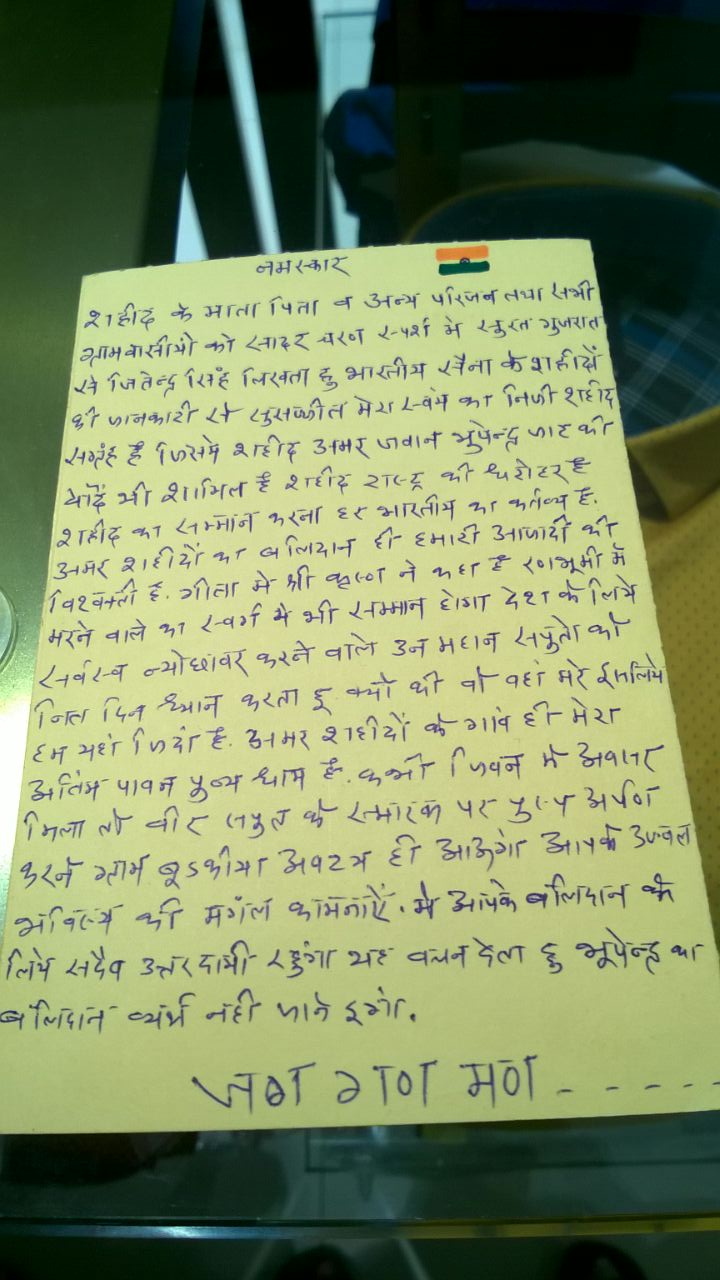 नमस्कार
शहीद के माता पिता व अन्य परिजन तथा सभी
ग्रामवासीयो को सादर चरण स्पर्श मे सुरत गुजरात
से जितेन्द्र सिंह लिखता हु भारतीय सैना के शहीदों
की जानकारी से सुसज्जीत मेरा स्वंय का निजी शहीद
सग्रंह है जिसमे शहीद अमर जवान भुपेन्द्र जाट की
यादें भी शामिल है शहीद राष्ट्र की धरोहर है
शहीद का सम्मान करना हर भारतीय का कर्तव्य है.
अमर शहीदों का बलिदान ही हमारी आजादी की
विश्वक्ती है. गीता मे श्री कृष्ण ने कहा है रणभूमी मे
मरने वाले का स्वर्ग मे भी सम्मान होगा देश के लिये
सर्वस्व न्योछावर करने वाले उन महान सपुतो को
नित दिन ध्यान करता हू क्यो की वो वहां मरे इसलिये
हम यहां जिंदा है. अमर शहीदों के गावं ही मेरा
अतिंम पावन पुन्य धाम है. कभी जिवन मे अवसर
मिला तो वीर सपुत के स्मारक पर पुष्प अर्पण
करने ग्राम बुडकीया अवश्य ही आऊगां आपके उज्वल
भविष्य की मगंल कामनाऐं. मे आपके बलिदान के
लिये सदैव उत्तरदायी रहुंगा यह वचन देता हु भूपेन्द्र का
बलिदान व्यर्थ नही जाने दुगां.
जण गण मण - - - - -